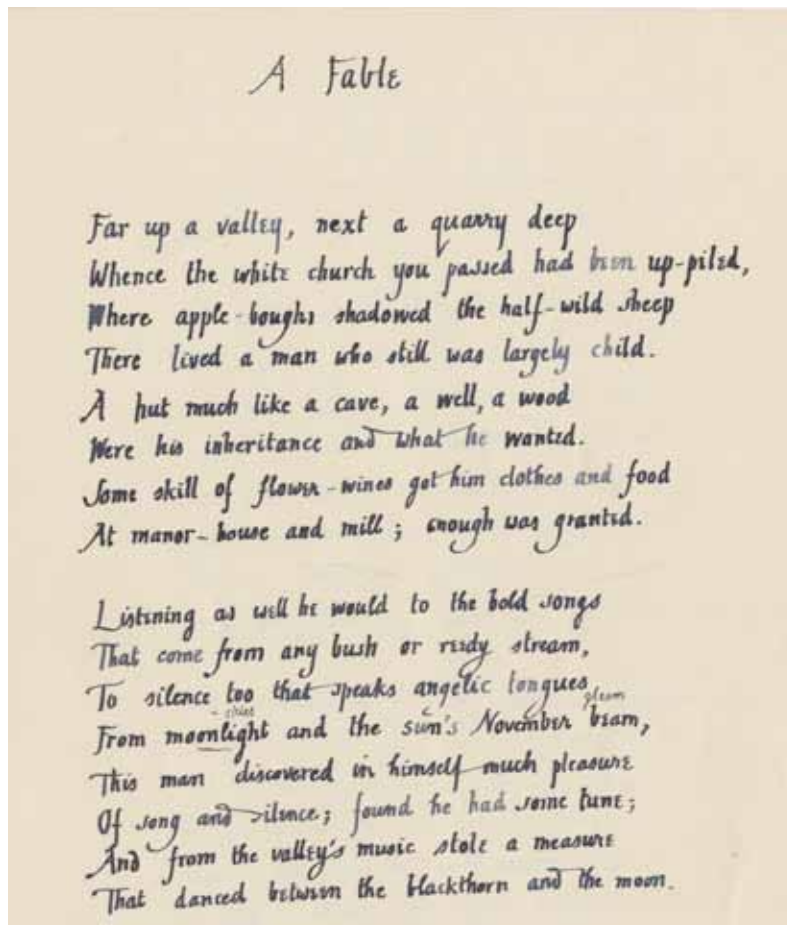 A Fable
Far up a valley, next a quarry deep
Whence the white church you passed had been up-piled,
Where apple-boughs shadowed the half-wild sheep
There lived a man who still was largely child.
A hut much like a cave, a well, a wood
Were his inheritance and what he wanted.
Some skill of flower-wines got him clothes and food
At manor-house and mill; enough was granted.
Listening as well he would to the bold songs
That come from any bush or reedy stream,
To silence too that speaks angelic tongues
gleam
From moonlight and the sun's November beam,
This man discovered in himself much pleasure
Of song and silence; found he had some tune;
And from the valley's music stole a measure
That danced between the blackthorn and the moon.